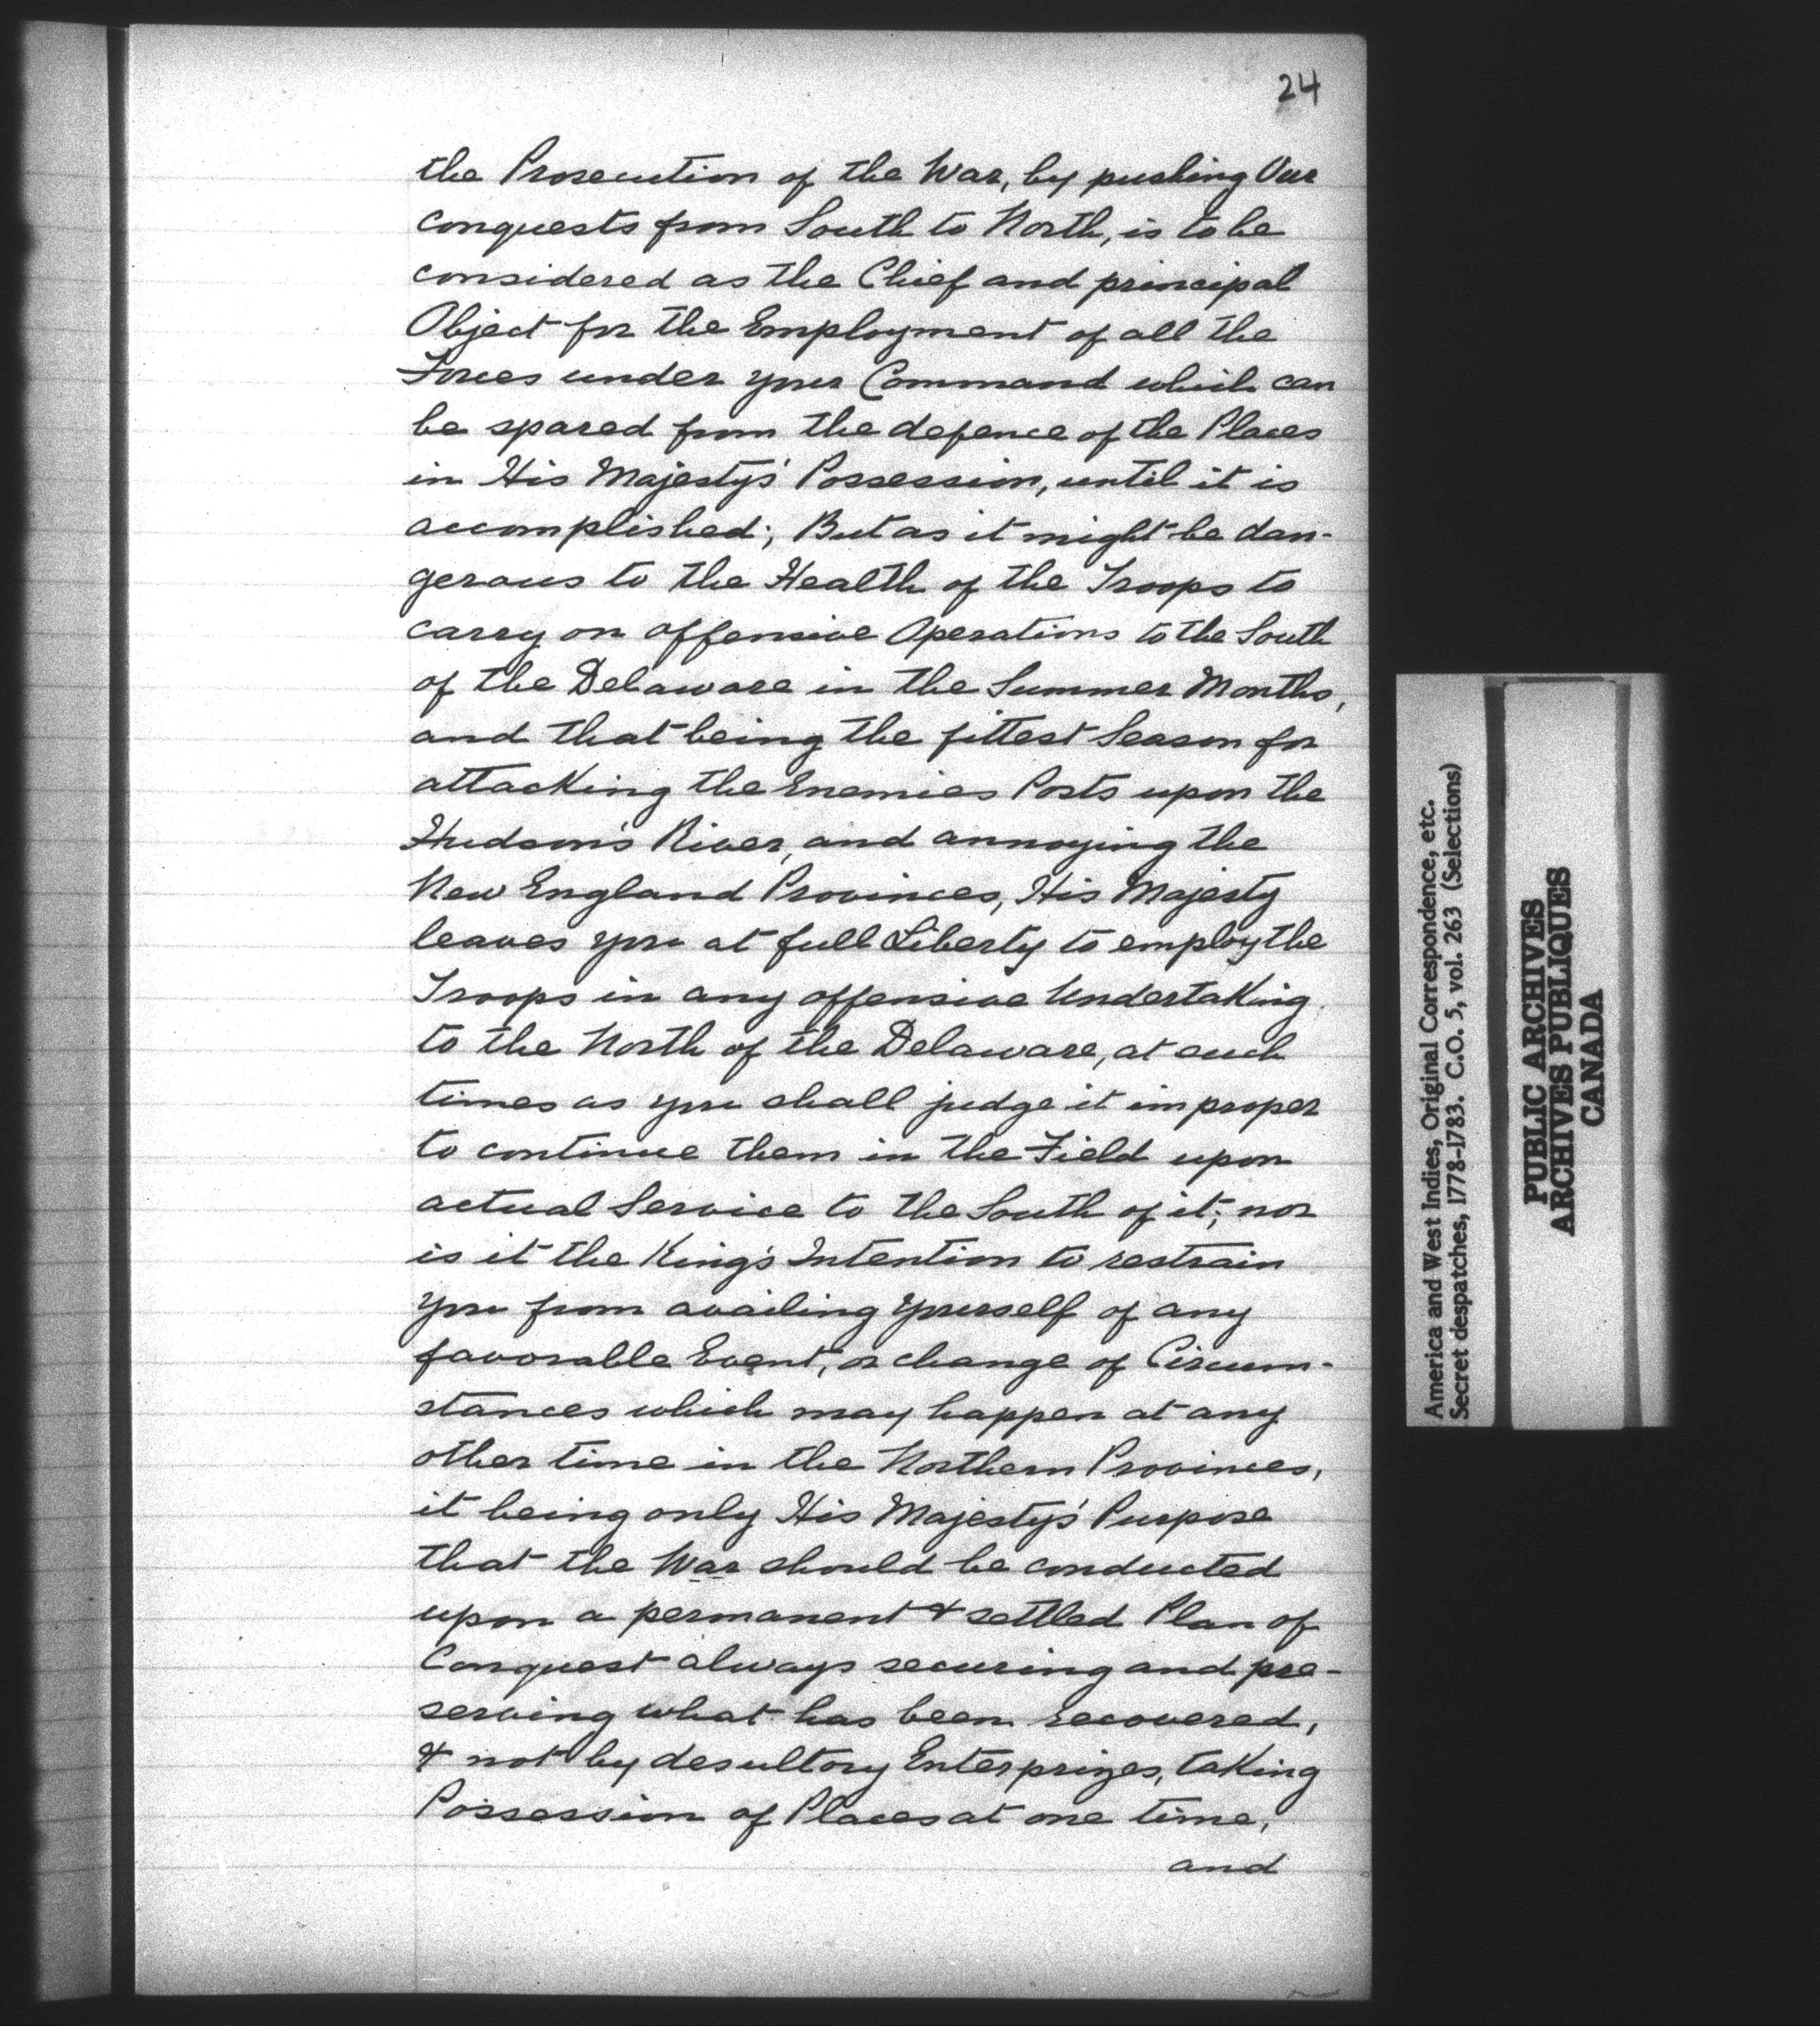 24
the Prosecution of the War, by pushing Our
conquests from South to North, is to be
considered as the Chief and principal
Object for the Employment of all the
Forces under your Command which can
be spared from the defence of the Places
in His Majesty's Possession, until it is
accomplished; But as it might be dan-
gerous to the Health of the Troops to
carry on offensive Operations to the South
of the Delaware in the Summer Months,
and that being the fittest Season for
attacking the Enemies Posts upon the
Hudson's River, and annoying the
New England Provinces, His Majesty
leaves you at full Liberty to employ the
Troops in any offensive Undertaking
to the North of the Delaware, at such
times as you shall judge it improper
to continue them in the Field upon
actual Service to the South of it; nor
is it the King's Intention to restrain
you from availing yourself of any
favorable Event, or change of Circum-
stances which may happen at any
other time in the Northern Provinces,
it being only His Majesty's Purpose
that the War should be conducted
upon a permanent & settled Plan of
Conquest always securing and pre-
serving what has been recovered,
& not by desultory Enterprizes, taking
Possession of Places at one time,
and
America and West Indies, Original Correspondence, etc.
Secret despatches, 1778-1783. C.O. 5, vol. 263 (Selections)
PUBLIC ARCHIVES
ARCHIVES PUBLIQUES
CANADA